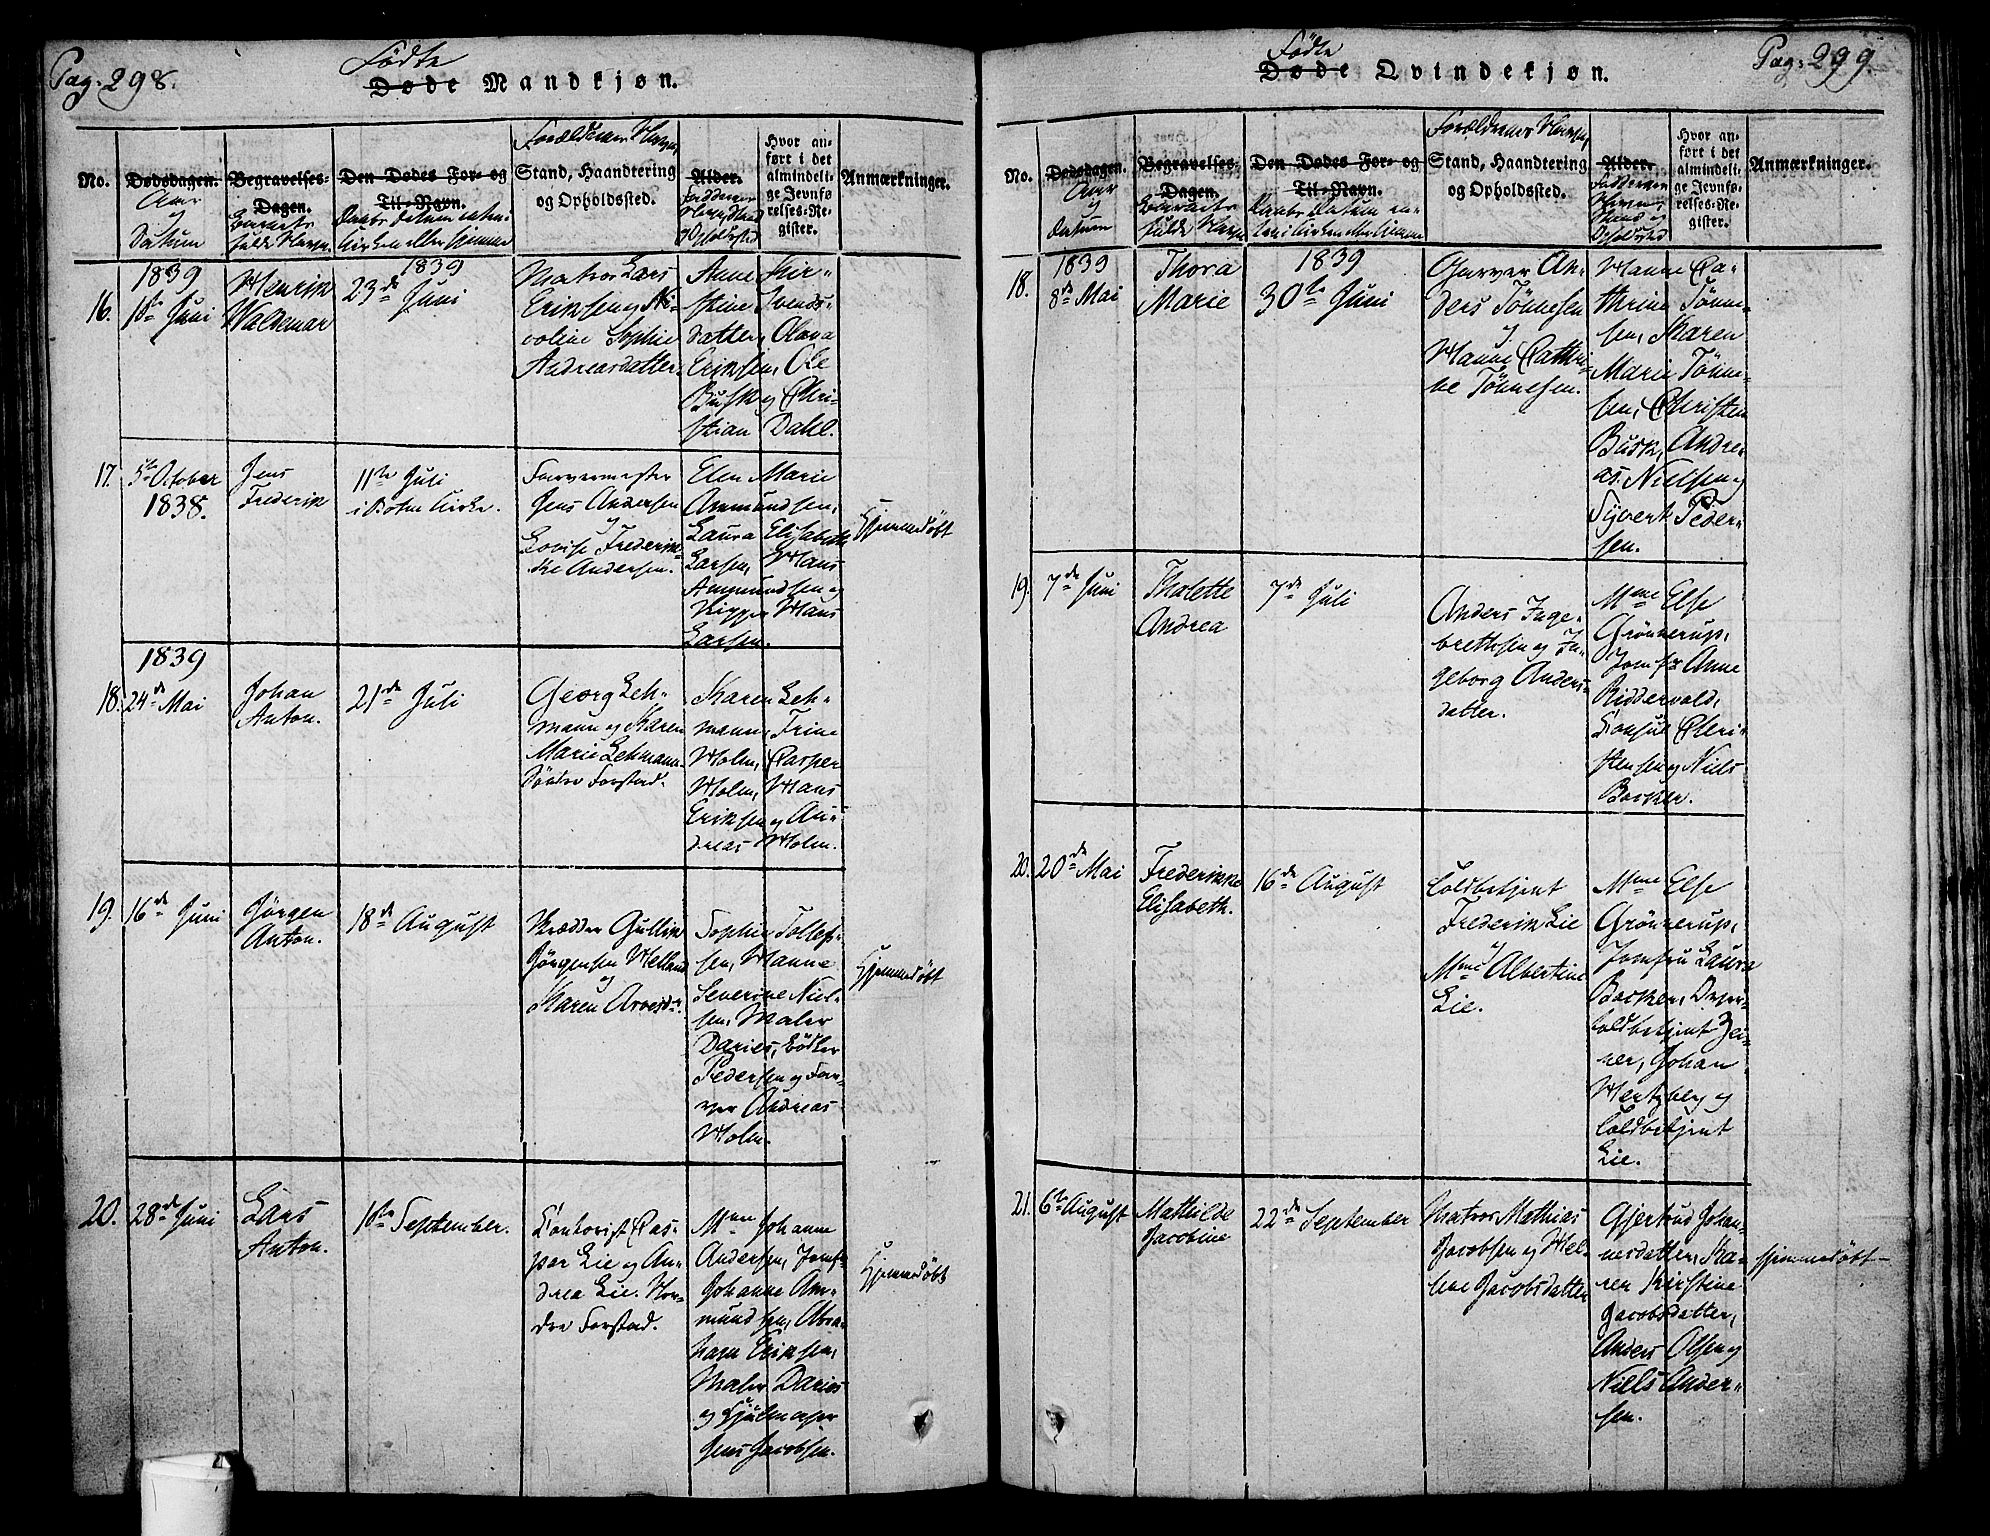 Pag. 298.
Fødte
Døde Mandkjøn.
No.
Dødsdagen.
Aar
og
Datum
Begravelses-
Dagen.
Barnets
fulde Navn
Den Dødes For- og
Til-Navn.
Daabs Datum enten i
Kirken eller hjemme
Forældrenes Navne,
Stand, Haandtering
og Opholdssted.
Alder.
Faddernes
Opholdssted
Hvor an-
ført i det
almindeli-
ge Jevnfø-
relses-Re-
gister.
Anmærkninger.
16.
1839
10de Juni
Henrik
Waldemar
1839
23de Juni
Matros Lars
Eriksen og Ni-
coline Sophie
Andreasdatter.
Anne Kir-
stine Svends-
datter, Olava
Eriksen, Ole
Busk og Chri-
stian Dahl.
17.
5te October
1838.
Jens
Frederik
11te Juli
i Kirke.
Farvermester
Jens Andersen
og
Lovise Frederik-
ke Andersen.
Elen Marie
Ammundsen,
Laura Elisabeth
Larsen, Hans
Ammundsen og
Skipper Hans
Larsen.
Hjemmedøbt
18.
1839
24de Mai
Johan
Anton.
21de Juli
Georg Leh-
mann og Karen
Marie Lehmann
Søndre Forstad.
Karen Leh-
mann, Trine
Holm, Casper
Holm, Hans
Eriksen og An-
dreas Holm.
19.
16de Juni
Jørgen
Anton.
18de August
Skrædder Gullik
Jørgensen Helland
og
Karen Arvesdr.
Sophie Tollef-
sen, Hanne
Severine Niel-
sen, Maler
Daries, Bødker
Pedersen og Far-
ver Andreas
Holm.
Hjemmedøbt
20.
28de Juni
Lars
Anton.
10de September.
Kontorist Cas-
par Lie og An-
drea Lie. Nor-
dre Forstad.
Mme Johanne
Andersen, Jomfr.
Johanne Am-
mundsen, Abra-
ham Eriksen,
Maler Daries
og Hjulmager
Jens Jacobsen.
Hjemmedøbt
Pag. 299.
Fødte
Døde Qvindekjøn.
No.
Dødsdagen.
Aar
og
Datum
Begravelses-
Dagen.
Barnets
fulde Navn
Den Dødes For- og
Til-Navn.
Daabs Datum en-
ten i Kirken eller hjemme
Forældrenes Navne,
Stand, Haandtering
og Opholdssted.
Alder.
Faddernes
Navne,
Stand og
Opholdssted
Hvor an-
ført i det
almindeli-
ge Jevnfø-
relses-Re-
gister.
Anmærkninger.
18.
1839
8de Mai
Thora
Marie
1839
30te Juni
Garver An-
ders Tönnesen
og
Hanne Cathri-
ne Tönnesen.
Hanne Ca-
thrine Tönne-
sen, Karen
Marie Tönne-
sen, Christen
Busk, Andre-
as Nielsen og
Syvert Peder-
sen.
19.
7de Juni
Thalette
Andrea
7de Juli
Anders Inge-
brettsen og In-
geborg Anders-
datter.
Mme Else
Grönnerup,
Jomfr Anne
Riddervold,
Konsul Chri-
stensen og Niels
Backer.
20.
20de Mai
Frederikke
Elisabeth.
16de August
Toldbetjent
Frederik Lie
og
Mme Albertine
Lie.
Mme Else
Grönnerup,
Jomfru Laura
Backer,
Toldbetjent Zei-
ner, Johan
Hertzberg og
Toldbetjent
Lie.
21.
6te August
Mathilde
Jacobine
22de September
Matros Mathias
Jacobsen og Hel-
lene Jacobsdatter
Gjertrud Johan-
nesdatter, Ka-
ren Kirstine
Jacobsdatter,
Anders Olsen og
Niels Ander-
sen.
Hjemmedøbt